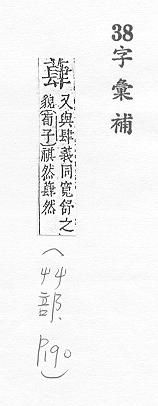 38字彙補
蕼
又與肆義同寬舒之
貌荀子祺然蕼然
(艸部. P190)